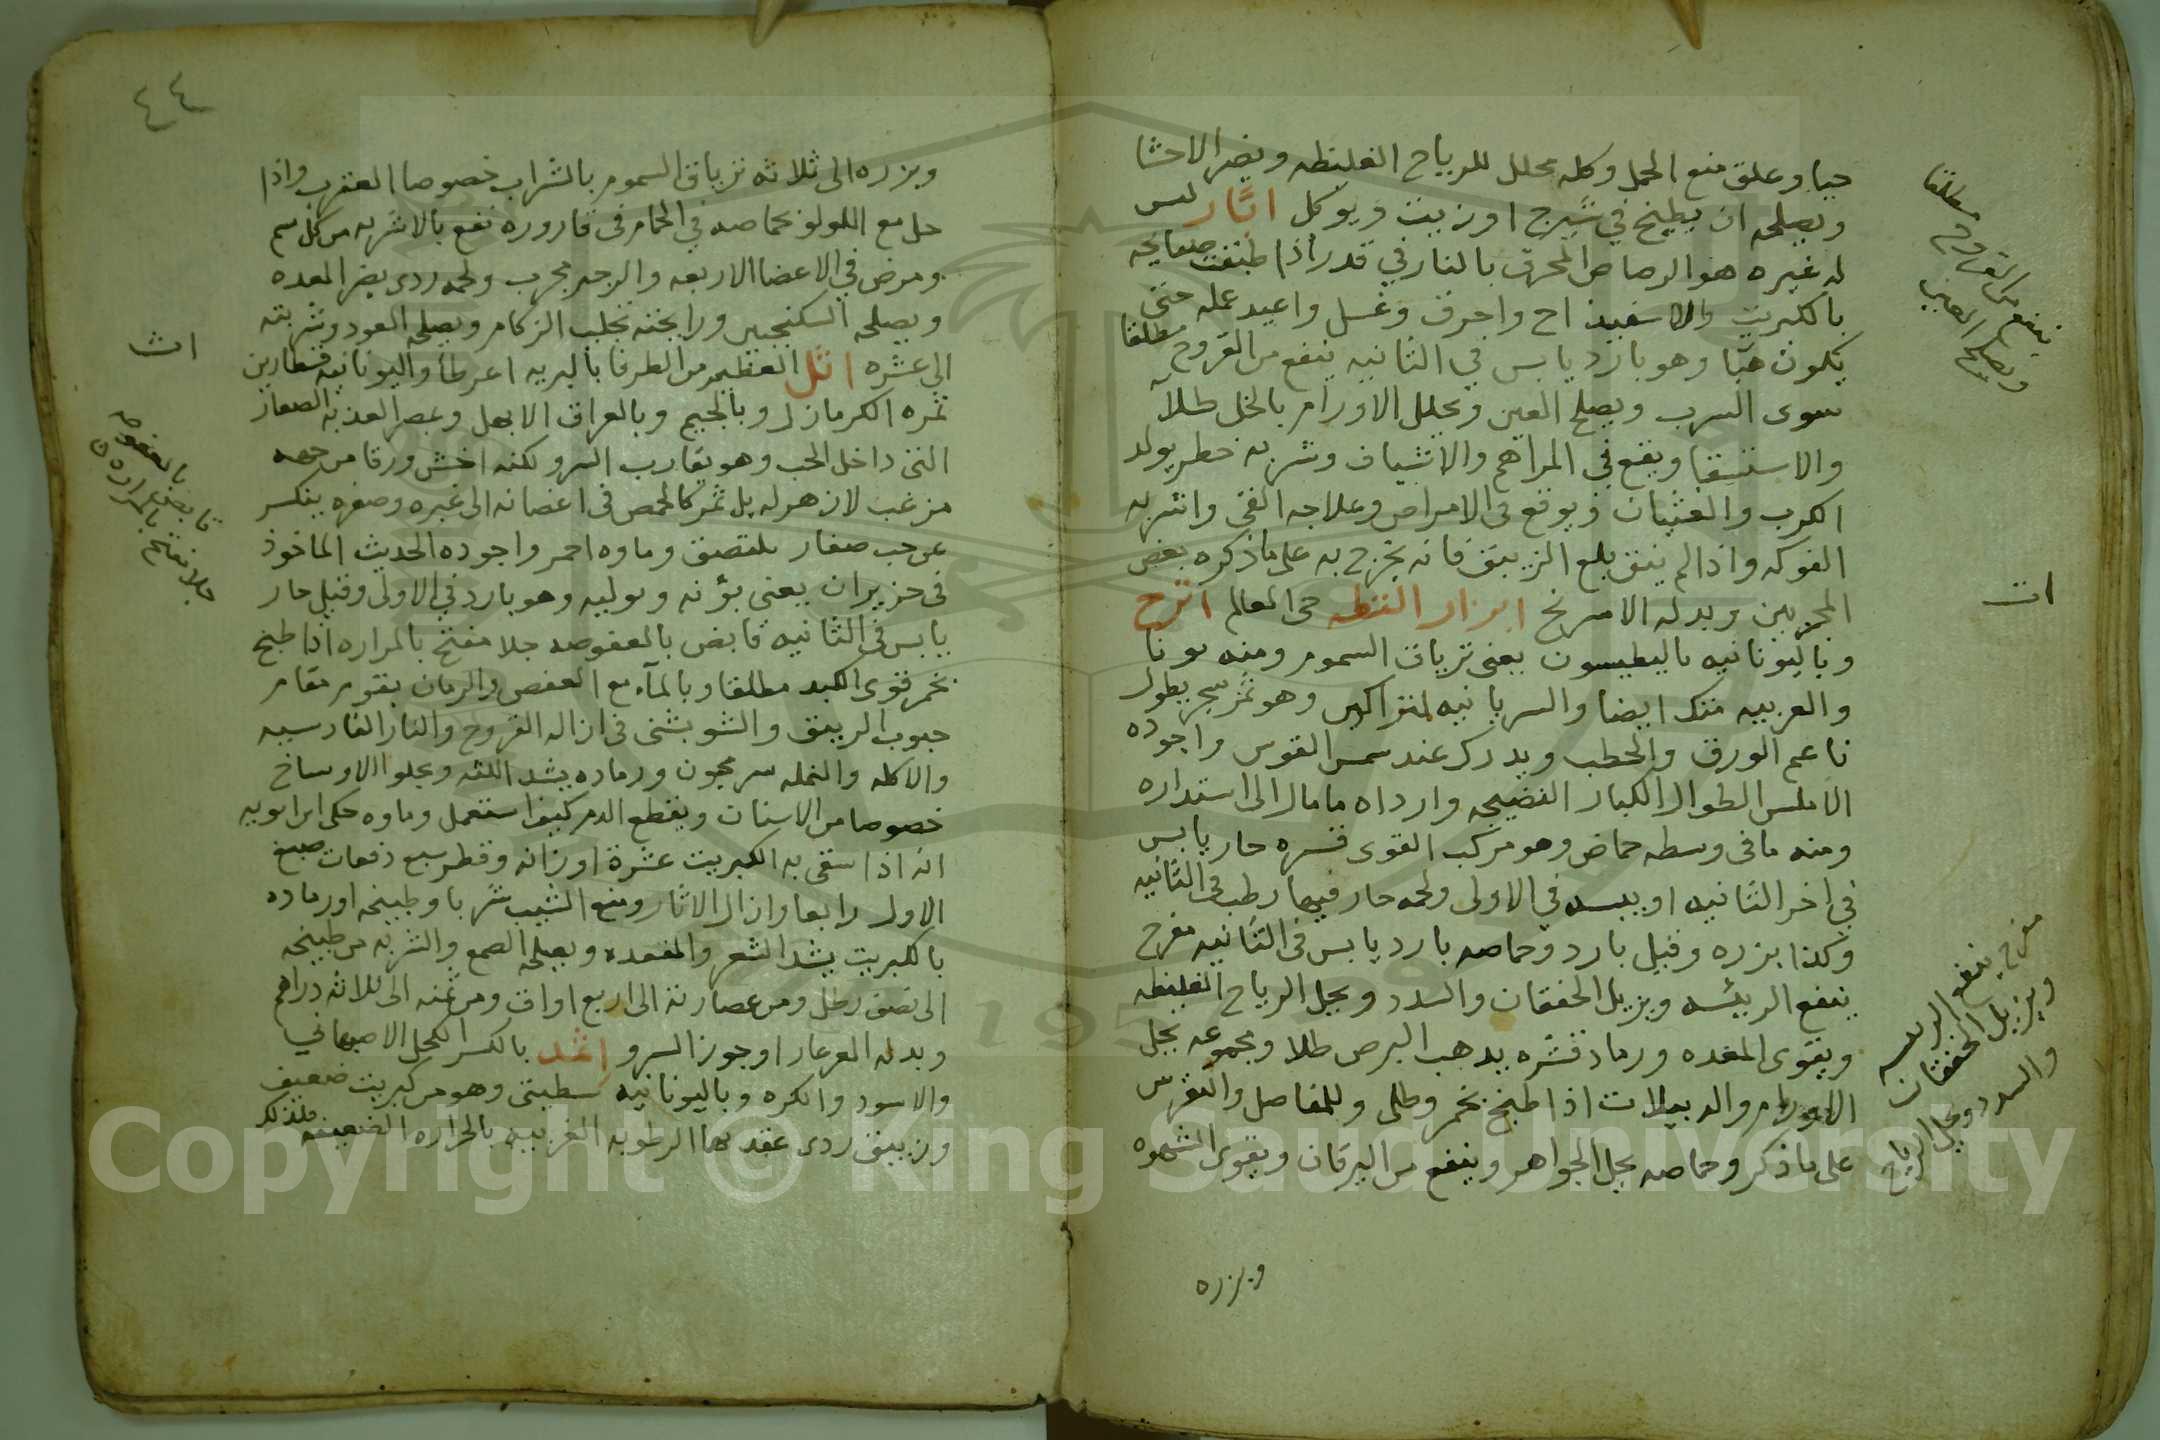 حيا وعلق منع الحمل وكله محلل للرياح الغليظه ويضر الاحشا
ويصلحه ان يطبخ في شيرج او زيت ويوكل اثار ليس
له غيره هو الرصاص المحرق بالنار في قدر اذا طبقت صفايحه
بالكبريت والاسفيداج واحرق وغسل واعيد عمله حتى
يكون هبا وهو بارد يابس في الثانيه ينفع من القروح مطلقا
سوى السرب ويصلح العين ويحلل الاورام بالخل طلآ
والاستسقا ويقع في المراهم والاشياف وشربه خطر يولد
الكرب والغثيان ويوقع في الامراض وعلاجه القي واشربه
الفوكه واذا لم ينق بلع الزيبق فانه يخرج به على ما ذكره بعض
المجربين وبدله الاسرنج ابزار القطه حى العالم اترج
وباليونانيه باليطيسون يعني ترياق السموم ومنه يونا
والعربيه متك ايضا والسريانيه لتراكين وهو ثمر شجر يطول
ناعم الورق والحطب ويدرك عند شمس القوس واجوده
الاملس الطوال الكبار النضيجه وارداه ما مال الى استداره
ومنه ما في وسطه حماض وهو مركب القوى قشره حار يابس
في اخر الثانيه او يبسه في الاولى ولحمه حار فيها رطب في الثانيه
وكذا بزره وقيل بارد وحماضه بارد يابس في الثانيه مفرح
ينفع الرييسه ويزيل الخفقان والسدد ويحلل الرياح الغليظه
ويقوى المعده ورماد قشره يذهب البرص طلا ومجموعه يحلل
الاورام والدبيلات اذا طبخ بخمر وطلى وللمفاصل والنقرس
على ما ذكر وحماضه يحل الجواهر وينفع من اليرقان ويقوى الشهوه
وبزره
ينفع من القروح مطلقا
ويصلح العين
اث
مفرح ينفع الرييسه
ويزيل الخفقان
والسدد ويحلل الرياح
٤٤
وبزره الى ثلاثه ترياق السموم بالشراب خصوصا العقرب واذا
حل مع اللولو بحماضه في الحمام في قاروره نفع بالاشربه من كل سم
ومرض في الاعضا الاربعه والرحم مجرب ولحمه ردى يضر المعده
ويصلحه السكنجبين ورايحته تجلب الزكام ويصلحه العود وشربته
الى عشره اثل العظيم من الطرفا بالبريه اعرطا واليونانيه قسطارين
ثمره الكرمازل وبالجيم وبالعراق الابهل وبمصر العذبه الصغار
التى داخل الحب وهو يقارب السرو لكنه اخشن ورقا من جهه
مزغب لا زهر له بل ثمر كالحمص في اغصانه الى غبره وصفره ينكسر
عن حب صغار ملتصق وماوه احمر واجوده الحديث الماخوذ
في حزيران يعنى بؤنه ويوليه وهو بارد في الاولى وقيل حار
يابس في الثانيه قابض بالعفوصه جلا مفتح بالمراره اذا طبخ
بخمر قوى الكبد مطلقا وبالمآء مع العفص والرمان يقوم مقام
حبوب الزيبق والشوبشنى في ازاله القروح والنار الفارسيه
والاكله والنمله سر مجون ورماده يشد اللثه ويجلوا الاوساخ
خصوصا من الاسنان ويقطع الدم كيف استعمل وماوه حكى ابن ابويه
انه اذا سقى به الكبريت عشرة اوزانه وقطر سبع دفعات صبغ
الاول رابعا وازال الاثار ومنع الشيب شربا وطبيخه او رماده
بالكبريت يشد الشعر والمقعده ويصلحه الصمغ والشربه من طبيخه
الى نصف رطل ومن عصارته الى اربع اواق ومن ثمنه الى ثلاثه دراهم
وبدله العرعار او جوز السرو اثمد بالكسر الكحل الاصبهاني
والاسود والكره وباليونانيه سطبتى وهو من كبريت ضعيف
وزيبق ردى عقد بهما الرطوبه الغريبيه بالحراره الضعيفه فلذلك
اث
قابض بالعفوصه
جلا مفتح بالمراره
Copyright © King Saud University
195